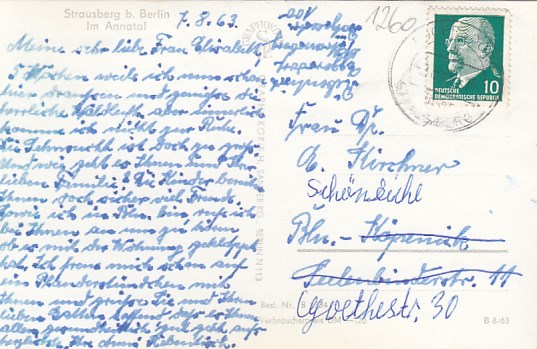 Strausberg b. Berlin
Im Annatal
7.8.63
Meine sehr liebe Frau Elisabeth
5 Wochen weile ich nun schon
hier draussen und genieße die
herrliche Waldluft, aber innerlich
komme ich nicht zur Ruhe.
Die Sehnsucht ist doch zu groß
Und wie geht es Ihnen und Ihrer
lieben Familie? Die Kinder bereiten
Ihnen doch sicher viel Freude
Sowie ich in Bln. bin rufe ich
bei Ihnen an um zu hören
ob es mit der Wohnung geklappt
hat. Ich freue mich schon auf
ein Plauderstündchen mit
Ihnen und grüße Sie und Ihren
lieben hoffend daß es Ihnen
allen gesundheitlich gut geht aufs
herzlichste Ihre
1260
DEUTSCHE
DEMOKRATISCHE REPUBLIK
10
Frau Dr.
Kirchner
Schöneiche
Bln.- Köpenick
Seelenbinderstr. 11
Goethestr. 30
Best.-Nr.
Verbraucherpreis
B 8/63